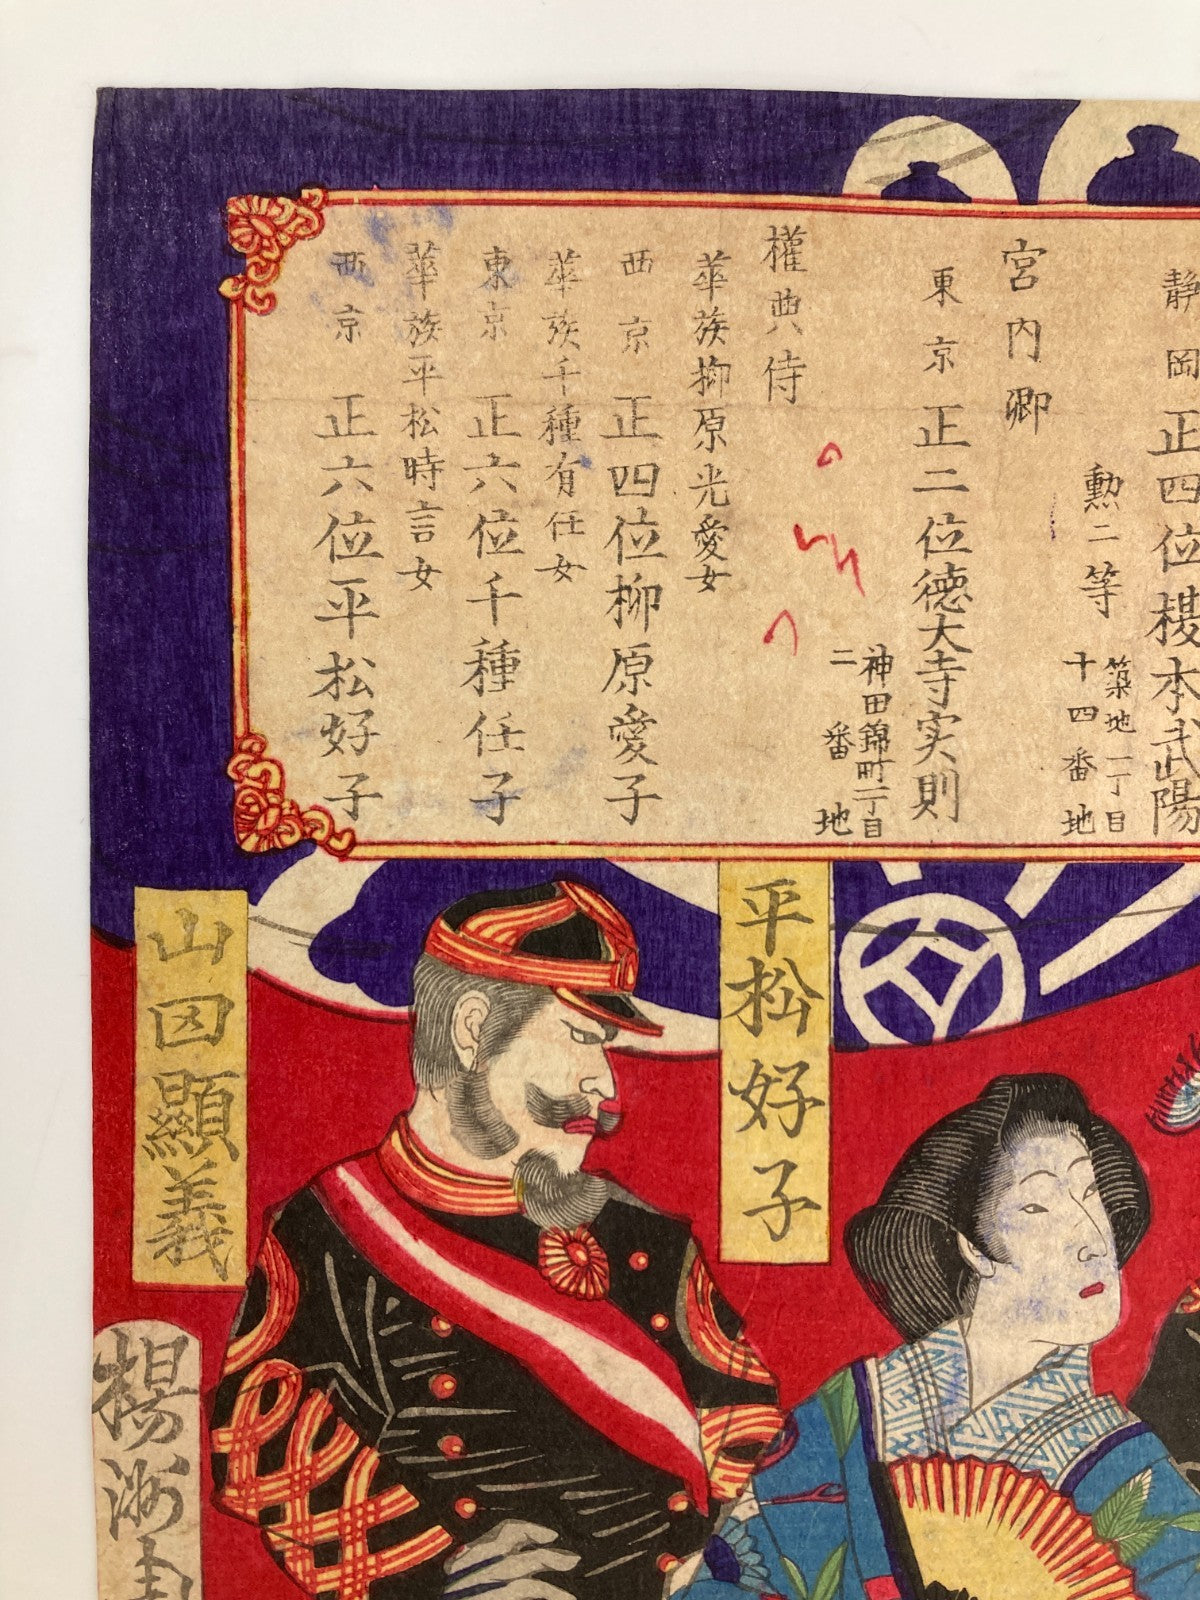 静岡 正四位榎本武陽
勲二等
築地一丁目
十四番地
宮内卿
東京 正二位徳大寺実則
神田錦町一丁目
二番地
權典侍
華族柳原光愛女
西京 正四位柳原愛子
華族千種有任女
東京 正六位千種任子
華族平松時言女
西京 正六位平松好子
平松好子
山田顯義
楊洲